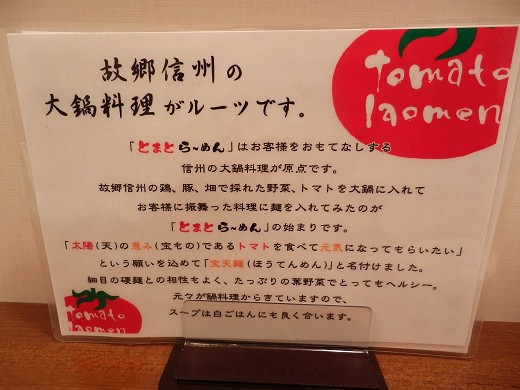 tomato
laomen
故郷信州の
大鍋料理がルーツです。
「とまとら～めん」はお客様をおもてなしする
信州の大鍋料理が原点です。
故郷信州の鶏、豚、畑で採れた野菜、トマトを大鍋に入れて
お客様に振舞った料理に麺を入れてみたのが
「とまとら～めん」の始まりです。
「太陽(天)の恵み(宝もの)であるトマトを食べて元気になってもらいたい」
という願いを込めて「宝天麺(ほうてんめん)」と名付けました。
細目の硬麺との相性もよく、たっぷりの葉野菜でとってもヘルシー。
元々が鍋料理からきていますので、
スープは白ごはんにも良く合います。
tomato
laomen